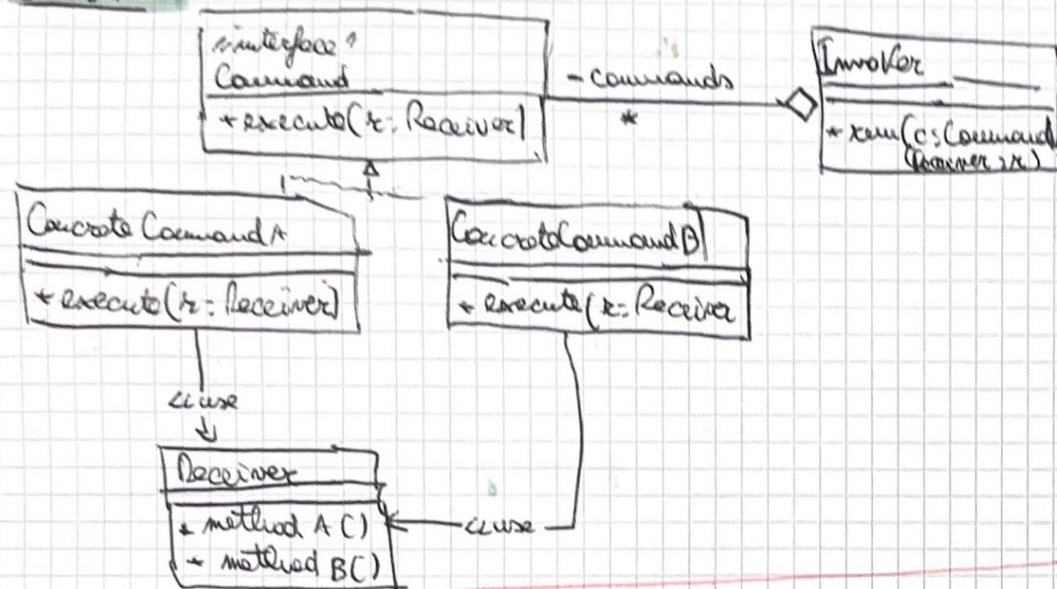 «interface»
Command
+ execute(r: Receiver)
- commands
*
Invoker
+ (c: Command,
Receiver r)
Concrete Command A
+ execute(r: Receiver)
ConcreteCommandB
+ execute(r: Receiver
<<use
Receiver
+ method A()
+ method B()
<<use